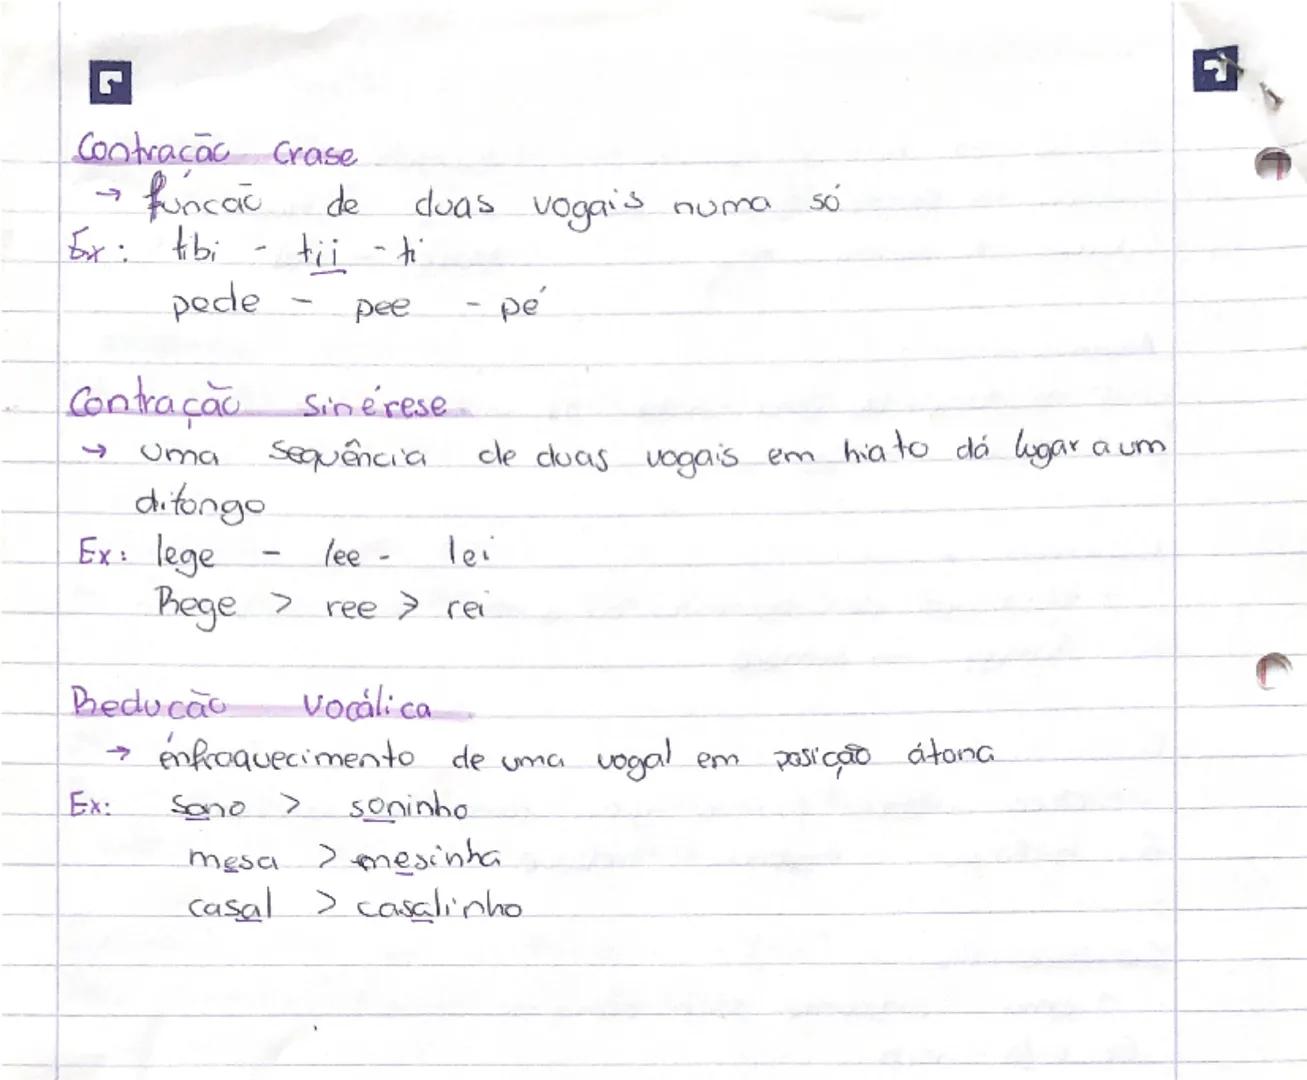 Contração Crase
→ função de duas vogais numa só
Ex: tibi - tii - ti
pede - pee - pé
Contração sinérese
→ uma sequência de duas vogais em hiato dá lugar a um
ditongo
Ex: lege - lee - lei
Rege > ree > rei
Redução Vocálica
→ enfraquecimento de uma vogal em posição átona
Ex: sono > soninho
mesa > mesinha
casal > casalinho